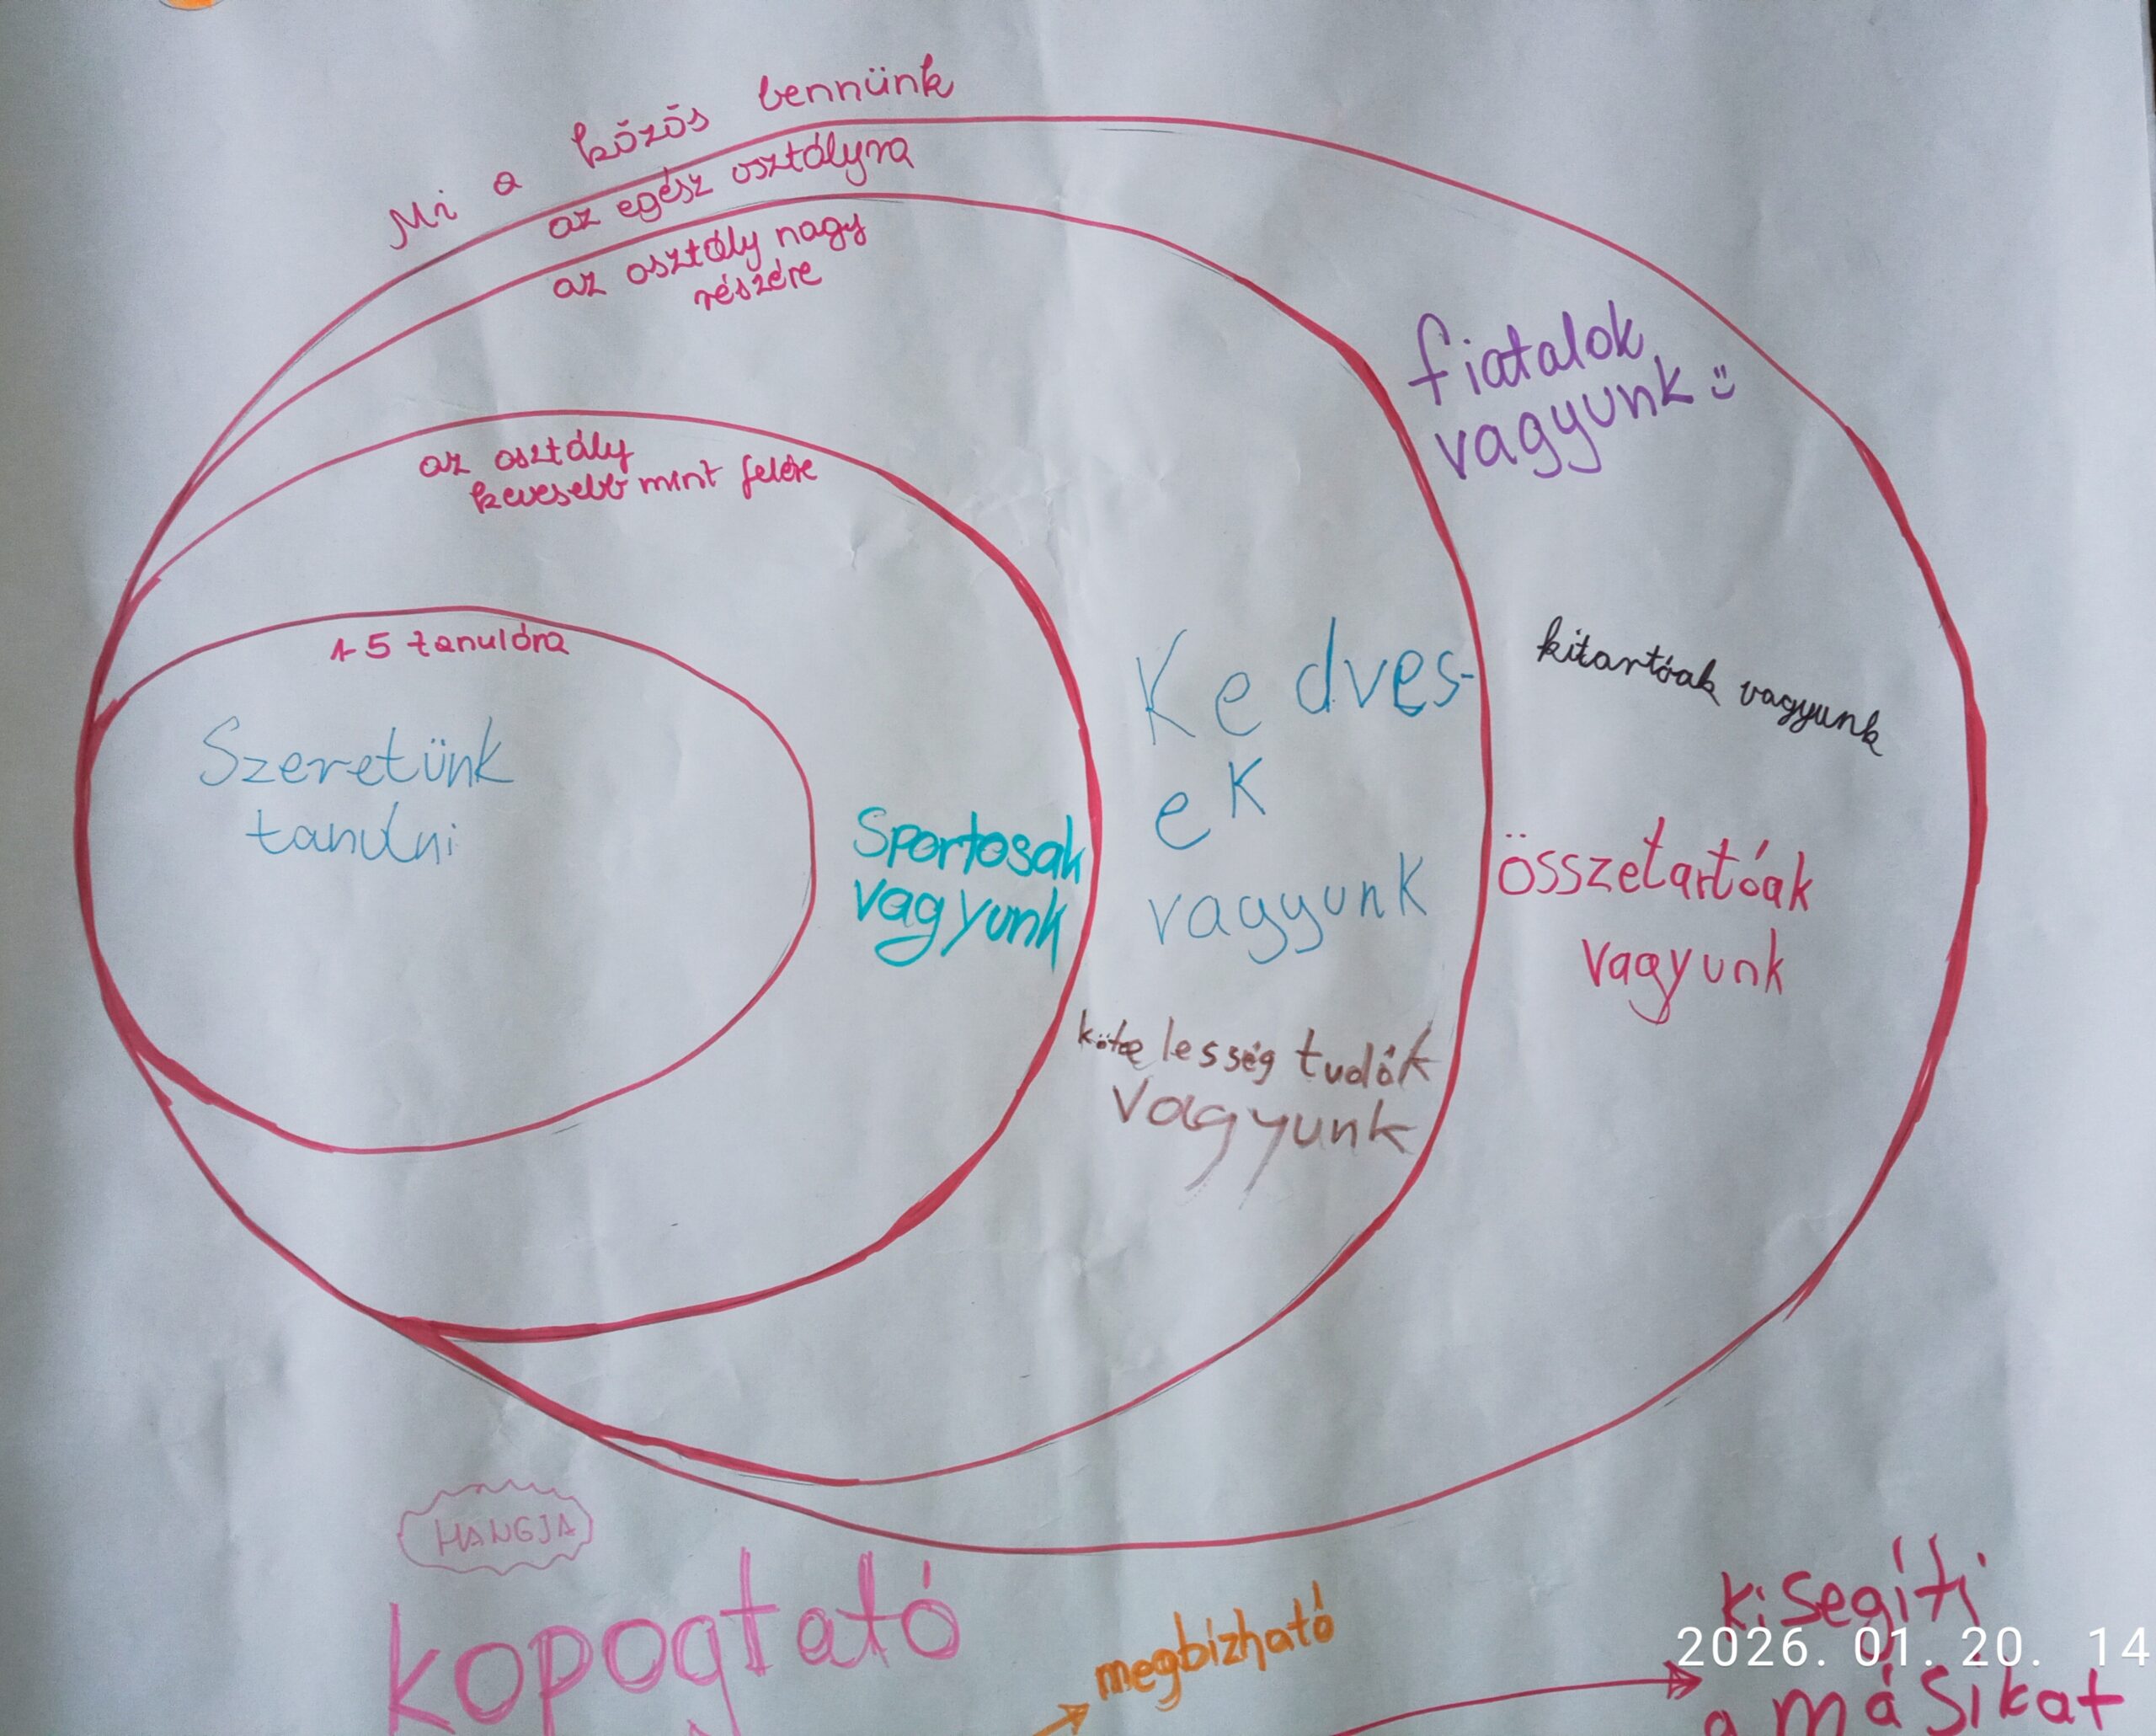 Mi a közös bennünk
az egész osztályra
az osztály nagy
részére
az osztály
kevesebb mint felére
1-5 tanulóra
Szeretünk
tanulni
Sportosak
vagyunk
Kedves-
ek
vagyunk
kötelesség tudók
vagyunk
fiatalok
vagyunk
kitartóak vagyunk
összetartóak
vagyunk
HANGJA
kopogtató
megbízható
kisegíti
a másikat
2026. 01. 20. 14